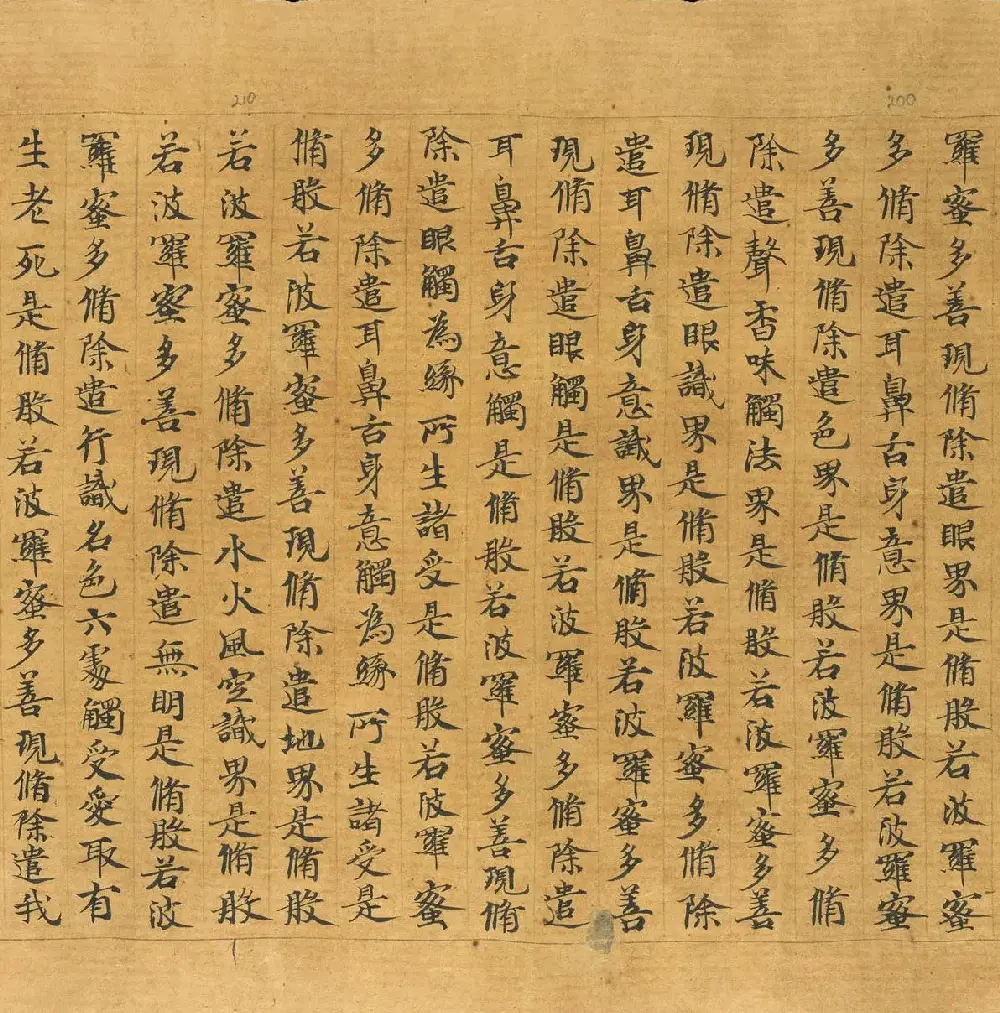 200
210
羅蜜多善現脩除遣眼界是脩般若波羅蜜
多脩除遣耳鼻舌身意界是脩般若波羅蜜
多善現脩除遣色界是脩般若波羅蜜多脩
除遣聲香味觸法界是脩般若波羅蜜多善
現脩除遣眼識界是脩般若波羅蜜多脩除
遣耳鼻舌身意識界是脩般若波羅蜜多善
現脩除遣眼觸是脩般若波羅蜜多脩除遣
耳鼻舌身意觸是脩般若波羅蜜多善現脩
除遣眼觸為緣所生諸受是脩般若波羅蜜
多脩除遣耳鼻舌身意觸為緣所生諸受是
脩般若波羅蜜多善現脩除遣地界是脩般
若波羅蜜多脩除遣水火風空識界是脩般
若波羅蜜多善現脩除遣無明是脩般若波
羅蜜多脩除遣行識名色六處觸受愛取有
生老死是脩般若波羅蜜多善現脩除遣我